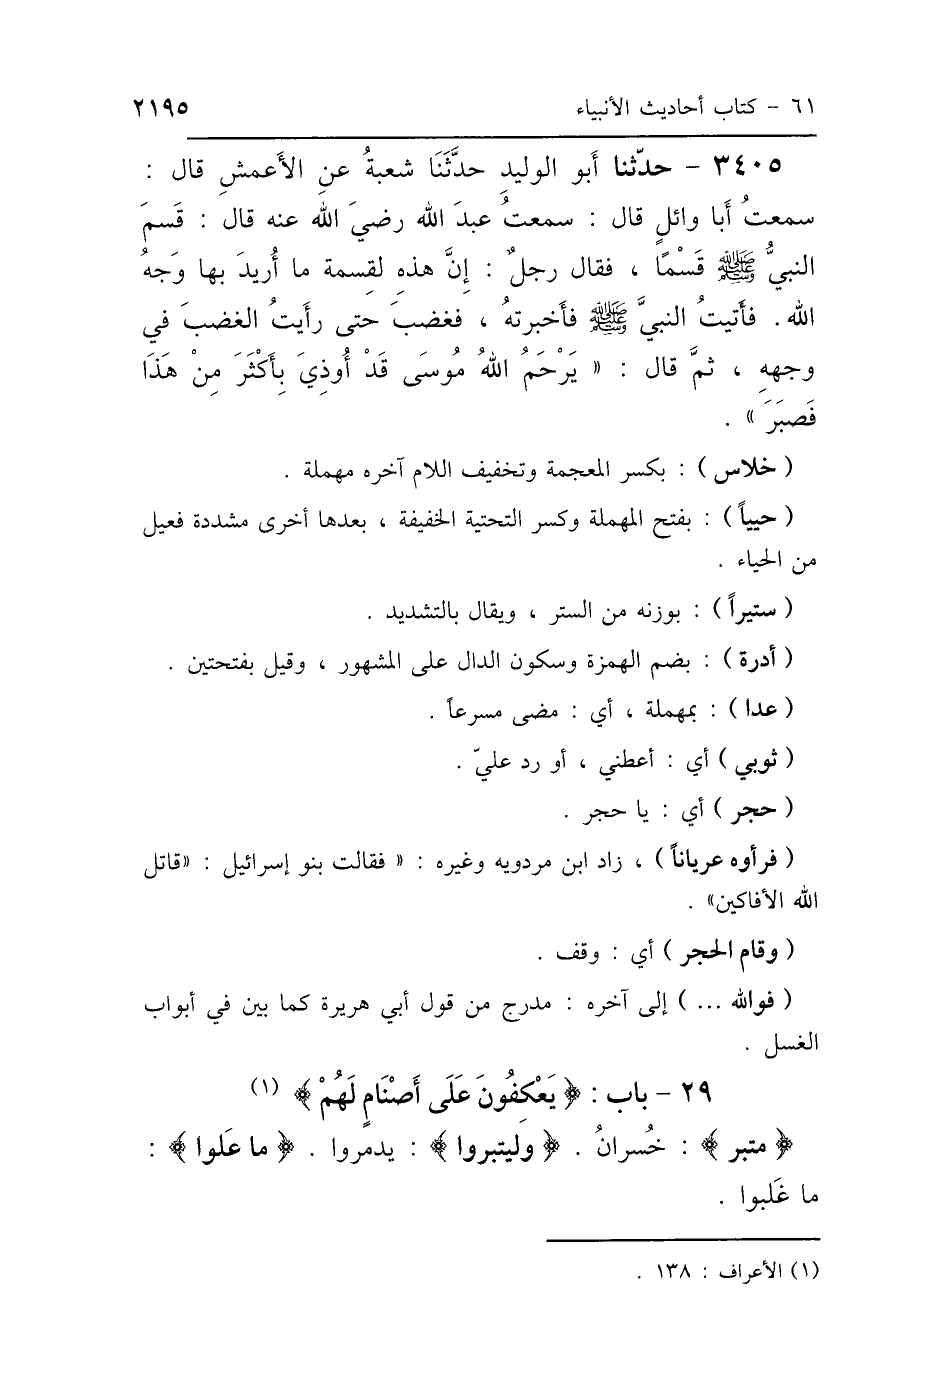 ٦١ - كتاب أحاديث الأنبياء ٢١٩٥
٣٤٠٥ - حدّثنا أَبو الوليدِ حدَّثَنَا شعبةُ عنِ الأَعمشِ قال :
سمعتُ أَبا وائلٍ قال : سمعتُ عبدَ الله رضيَ الله عنه قال : قَسمَ
النبيُّ ﷺ قَسْمًا ، فقال رجلٌ : إِنَّ هذهِ لقِسمة ما أُريدَ بها وَجهُ
الله. فأَتيتُ النبيَّ ﷺ فأَخبرتهُ ، فغضبَ حتى رأَيتُ الغضبَ في
وجههِ ، ثمَّ قال : « يَرْحَمُ اللهُ مُوسَى قَدْ أُوذِيَ بِأَكْثَرَ مِنْ هَذَا
فَصبَرَ » .
( خلاس ) : بكسر المعجمة وتخفيف اللام آخره مهملة .
( حيياً ) : بفتح المهملة وكسر التحتية الخفيفة ، بعدها أخرى مشددة فعيل
من الحياء .
( ستيراً ) : بوزنه من الستر ، ويقال بالتشديد .
( أدرة ) : بضم الهمزة وسكون الدال على المشهور ، وقيل بفتحتين .
( عدا ) : بمهملة ، أي : مضى مسرعاً .
( ثوبي ) أي : أعطني ، أو رد عليّ .
( حجر ) أي : يا حجر .
( فرأوه عرياناً ) ، زاد ابن مردويه وغيره : « فقالت بنو إسرائيل : «قاتل
الله الأفاكين» .
( وقام الحجر ) أي : وقف .
( فوالله ... ) إلى آخره : مدرج من قول أبي هريرة كما بين في أبواب
الغسل .
٢٩ - باب : ﴿ يَعْكِفُونَ عَلَى أَصْنَامٍ لَهُمْ ﴾ (١)
﴿ متبر ﴾ : خُسرانٌ . ﴿ وليتبروا ﴾ : يدمروا . ﴿ ما عَلوا ﴾ :
ما غَلبوا .
(١) الأعراف : ١٣٨ .